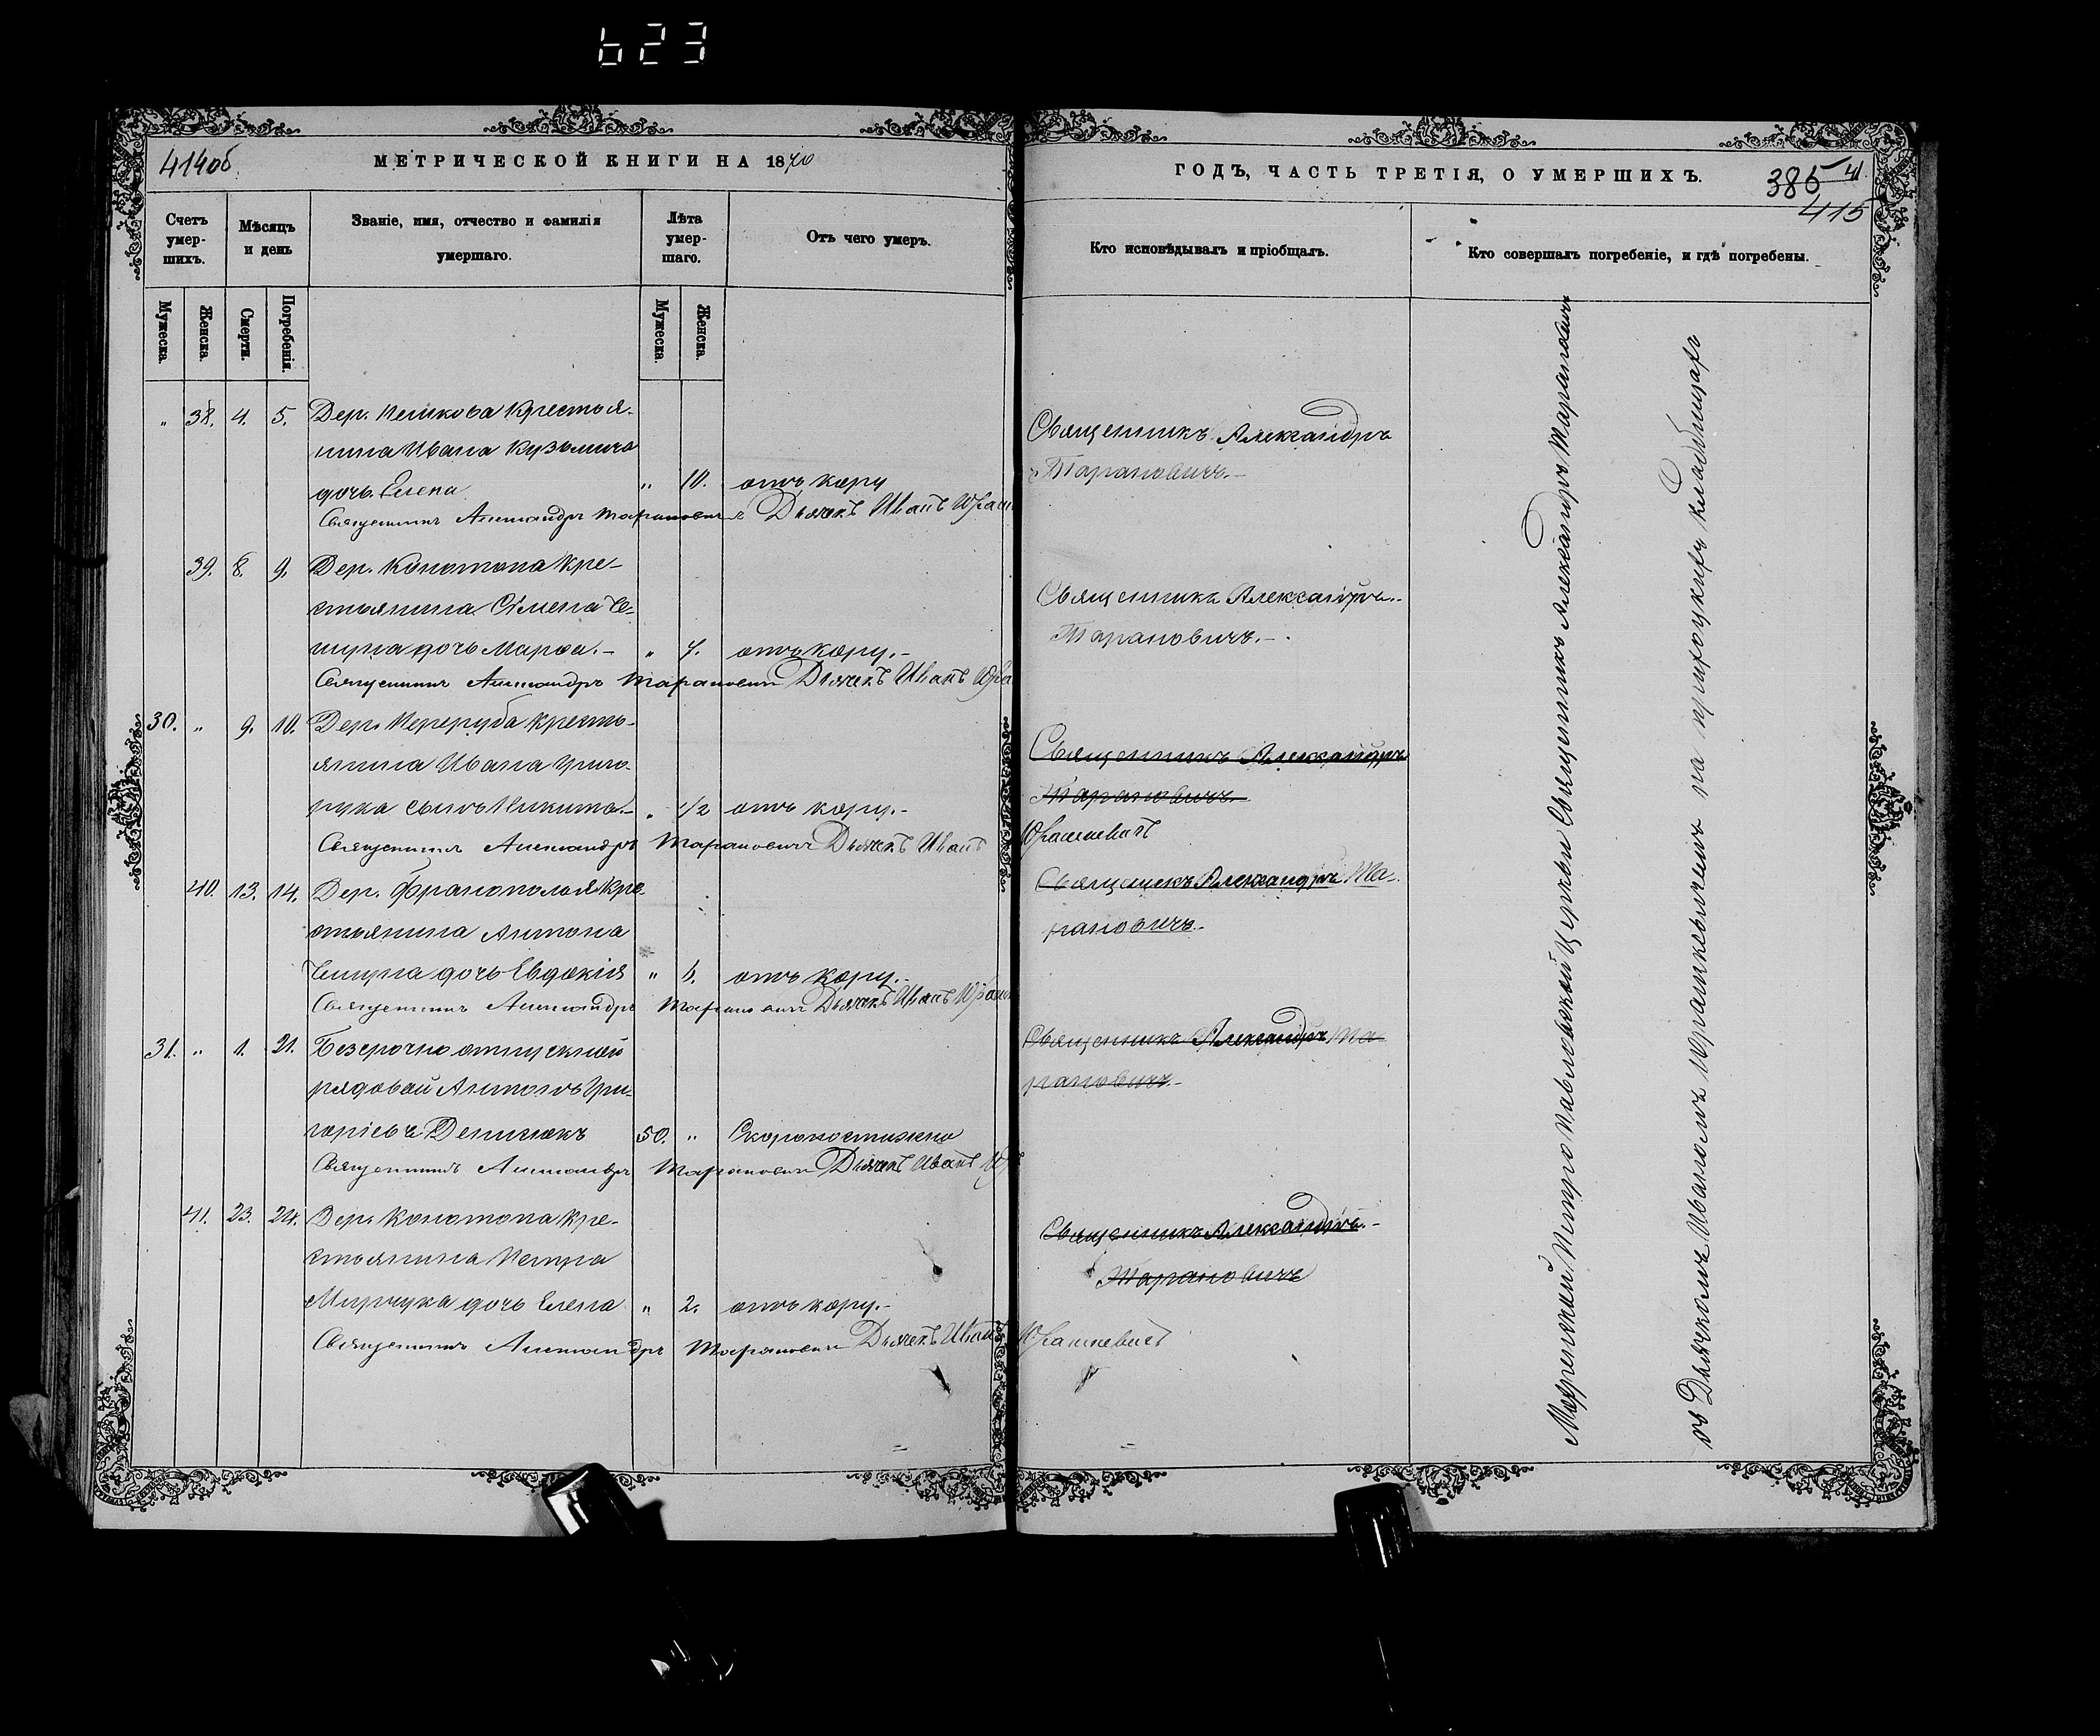 623
414об
МЕТРИЧЕСКОЙ КНИГИ НА 1870
Счетъ умер-шихъ.
Мѣсяцъ и день
Званіе, имя, отчество и фамилія умершаго.
Лѣта умер-шаго.
Отъ чего умеръ.
Мужеска.
Женска.
Смерти.
Погребенія.
Мужеска.
Женска.
„ 38. 4. 5. Дер. Пешкова Крестья-
нина Ивана Кузьмича
дочь Елена „ 10. отъ кору
Священникъ Александръ Тарановичъ Дьячекъ Иванъ
39. 8. 9. Дер. Конотопа Кре-
стьянина
дочь Марѳа. – „ 7. отъ кору. –
Священникъ Александръ Тарановичъ Дьячекъ Иванъ
30. „ 9. 10. Дер. Переруба Кресть-
янина Ивана Григо-
рука сынъ Никита. – „ 1/2 отъ кору. –
Священникъ Александръ Тарановичъ Дьячекъ Иванъ Юрашкевичъ
40. 13. 14. Дер. Франополья Кре-
стьянина Антона
дочь Евдокія „ отъ кору. –
Священникъ Александръ Тарановичъ Дьячекъ Иванъ
31. „ 1. 21. Безсрочно отпускной
рядовой Антонъ Гри-
горіевъ Денисюкъ 50. „ Скоропостижно
Священникъ Александръ Тарановичъ Дьячекъ Иванъ
41. 23. 24. Дер. Конотопа Кре-
стьянина Петра
дочь Елена „ 2. отъ кору. –
Священникъ Александръ Тарановичъ Дьячекъ Иванъ Юрашкевичъ
ГОДЪ, ЧАСТЬ ТРЕТІЯ, О УМЕРШИХЪ.
385 41.
415
Кто исповѣдывалъ и пріобщалъ.
Кто совершалъ погребеніе, и гдѣ погребены.
Священникъ Александръ
Тарановичъ. –
Священникъ Александръ. –
Тарановичъ. –
Священникъ Александръ
Тарановичъ. –
Священникъ Александръ Та-
рановичъ. –
Священникъ Александръ Та-
рановичъ. –
Священникъ Александръ. –
Тарановичъ
Петро Павловской Церкви Священникъ Александръ Тарановичъ
съ Дьячкомъ Иваномъ Юрашкевичемъ на приходскихъ кладбищахъ